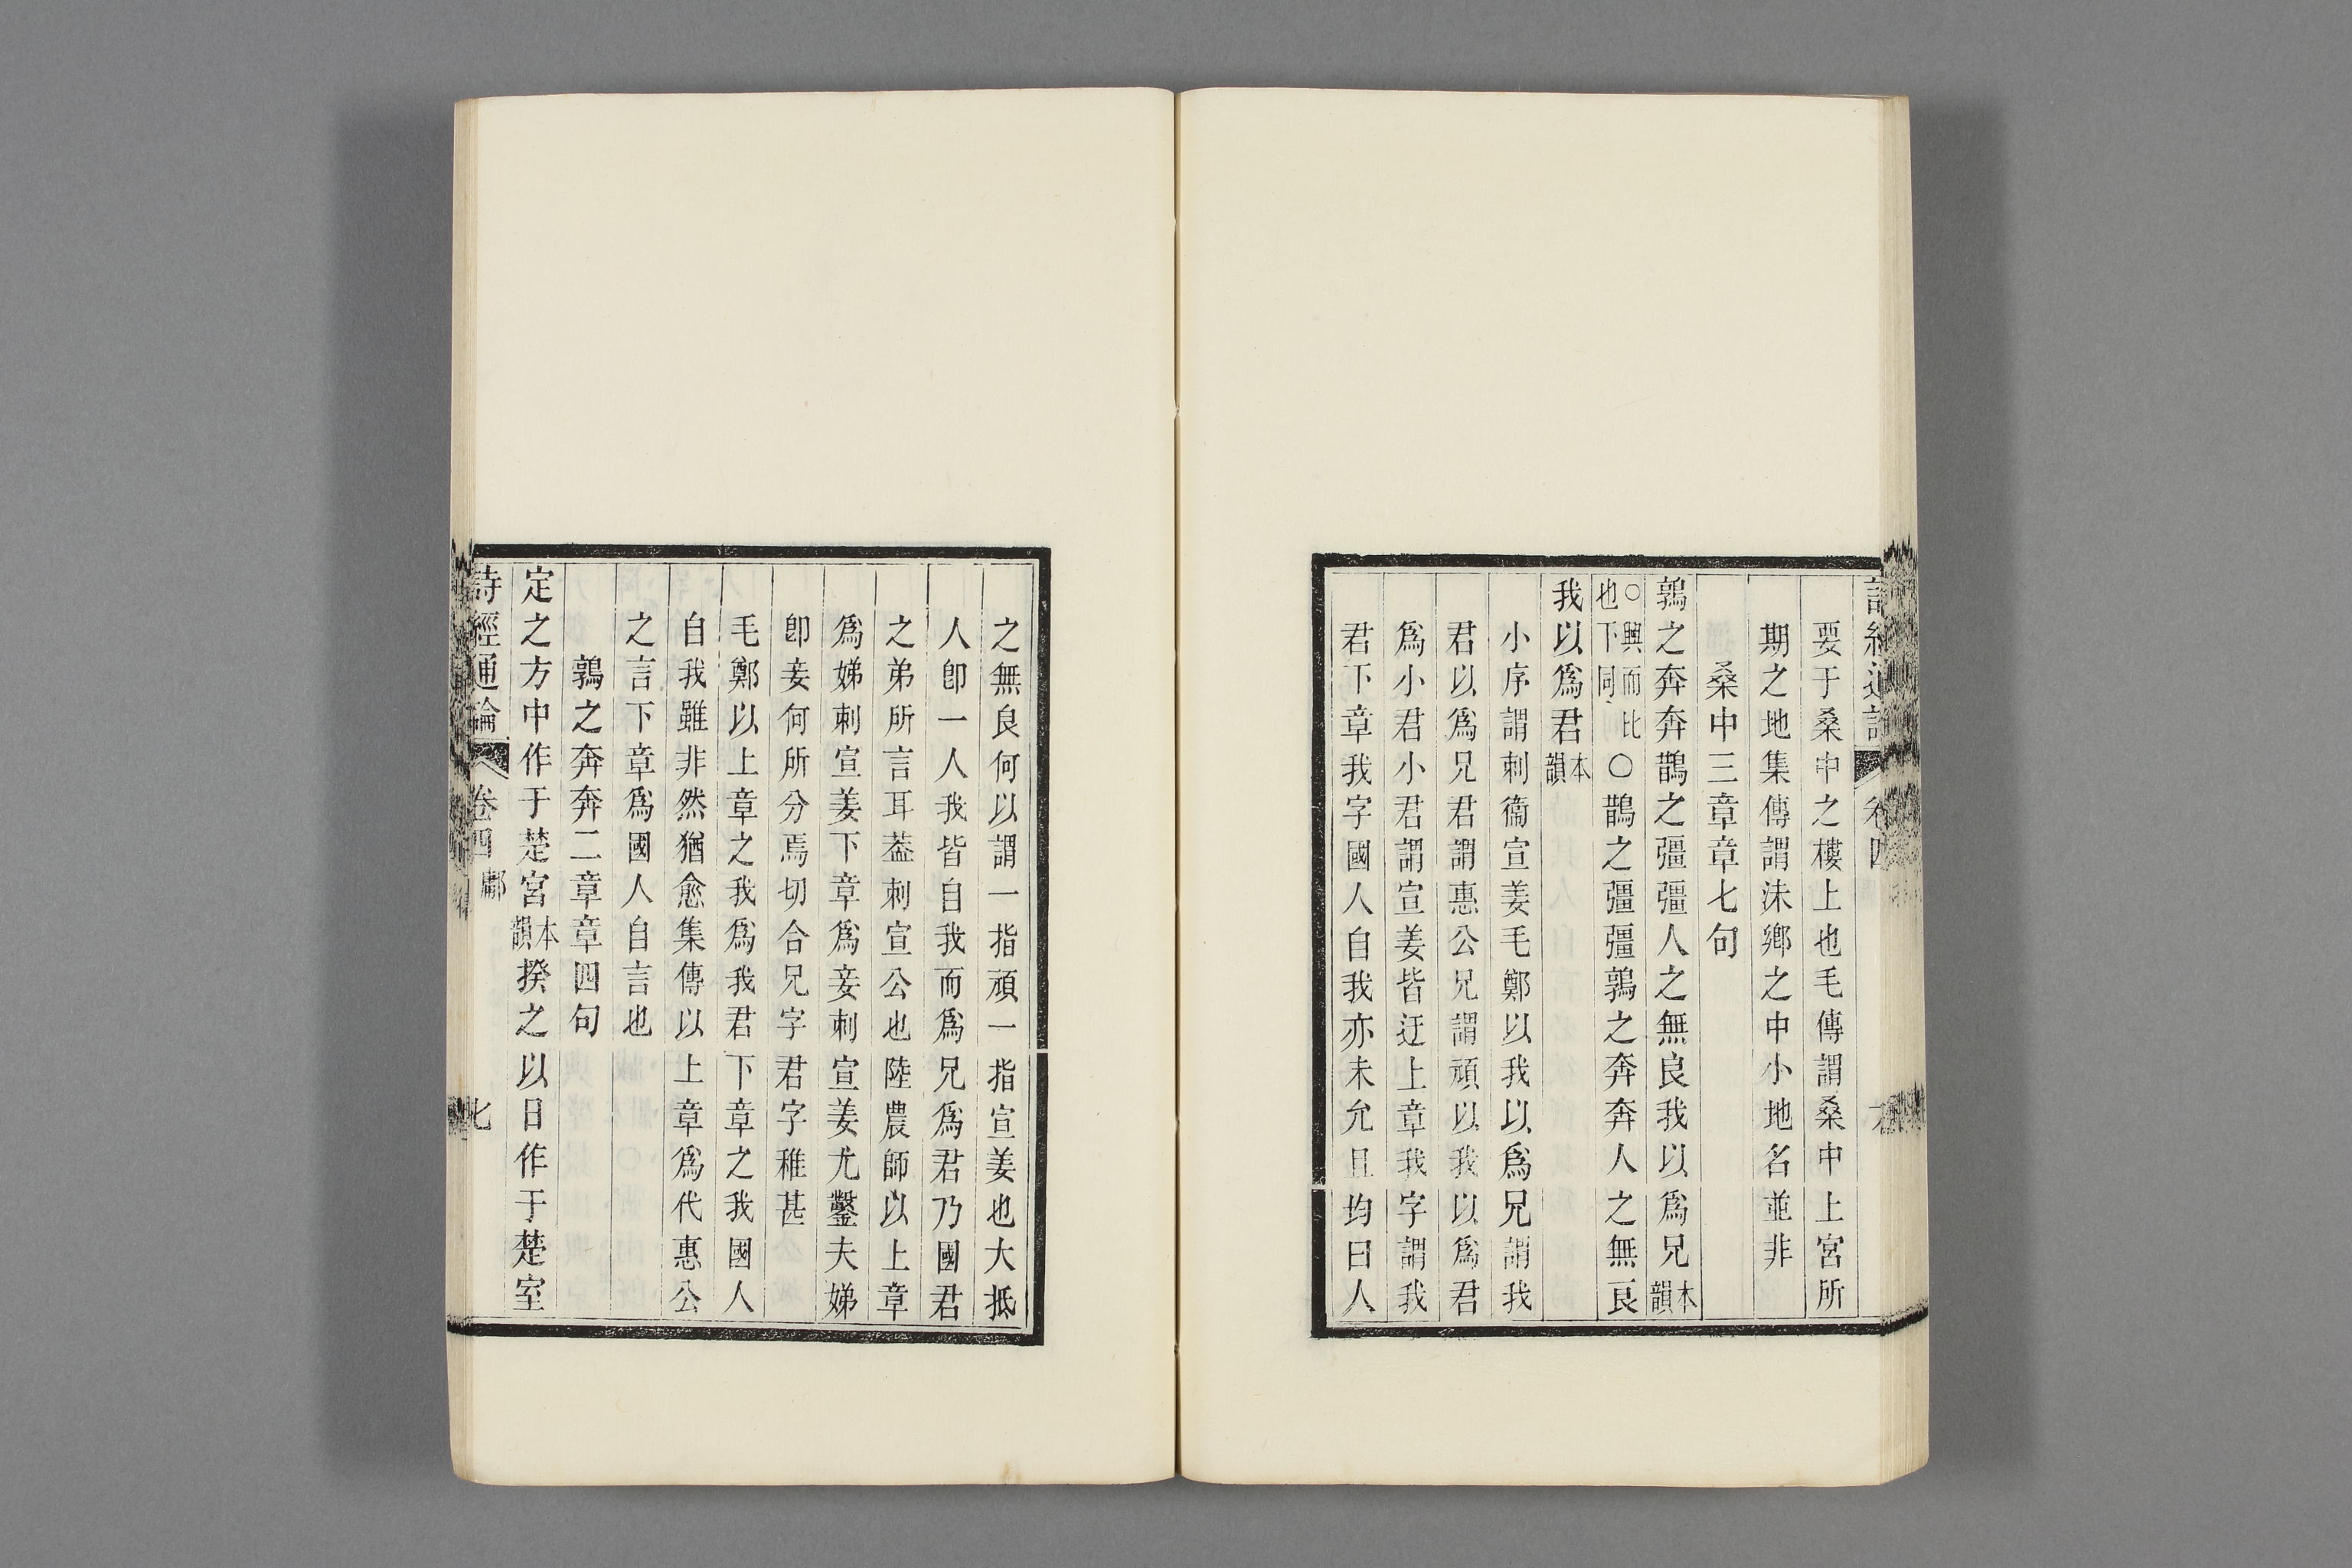 要于桑中之樓上也毛傳謂桑中上宮所
期之地集傳謂沬鄉之中小地名並非
桑中三章章七句
鶉之奔奔鵲之彊彊人之無良我以爲兄本韻
○興而比也下同○鵲之彊彊鶉之奔奔人之無良
我以爲君本韻
小序謂刺衞宣姜毛鄭以我以爲兄謂我
君以爲兄君謂惠公兄謂頑以我以爲君
爲小君小君謂宣姜皆迂上章我字謂我
君下章我字國人自我亦未允且均曰人
之無良何以謂一指頑一指宣姜也大抵
人卽一人我皆自我而爲兄爲君乃國君
之弟所言耳葢刺宣公也陸農師以上章
爲娣刺宣姜下章爲妾刺宣姜尤鑿夫娣
卽妾何所分焉切合兄字君字稚甚
毛鄭以上章之我爲我君下章之我國人
自我雖非然猶愈集傳以上章爲代惠公
之言下章爲國人自言也
鶉之奔奔二章章四句
定之方中作于楚宮本韻揆之以日作于楚室
詩經通論 卷四 鄘 七